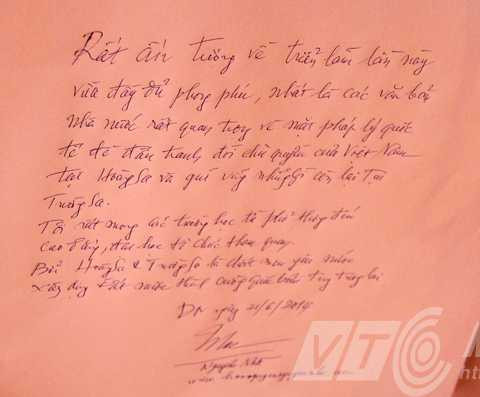 Rất ấn tượng về triển lãm lần này
vừa đầy đủ phong phú, nhất là các văn bản
nhà nước rất quan trọng về mặt pháp lý quốc
tế để đấu tranh đòi chủ quyền của Việt Nam
tại Hoàng Sa và giữ vững những gì còn lại tại
Trường Sa.
Tôi rất mong các trường học từ phổ thông đến
cao đẳng, đại học tổ chức tham quan
Bởi Hoàng Sa & Trường Sa là
Xây dựng Đất nước cường
ĐN ngày 21/6/2014
Nguyễn Nhã
VTC